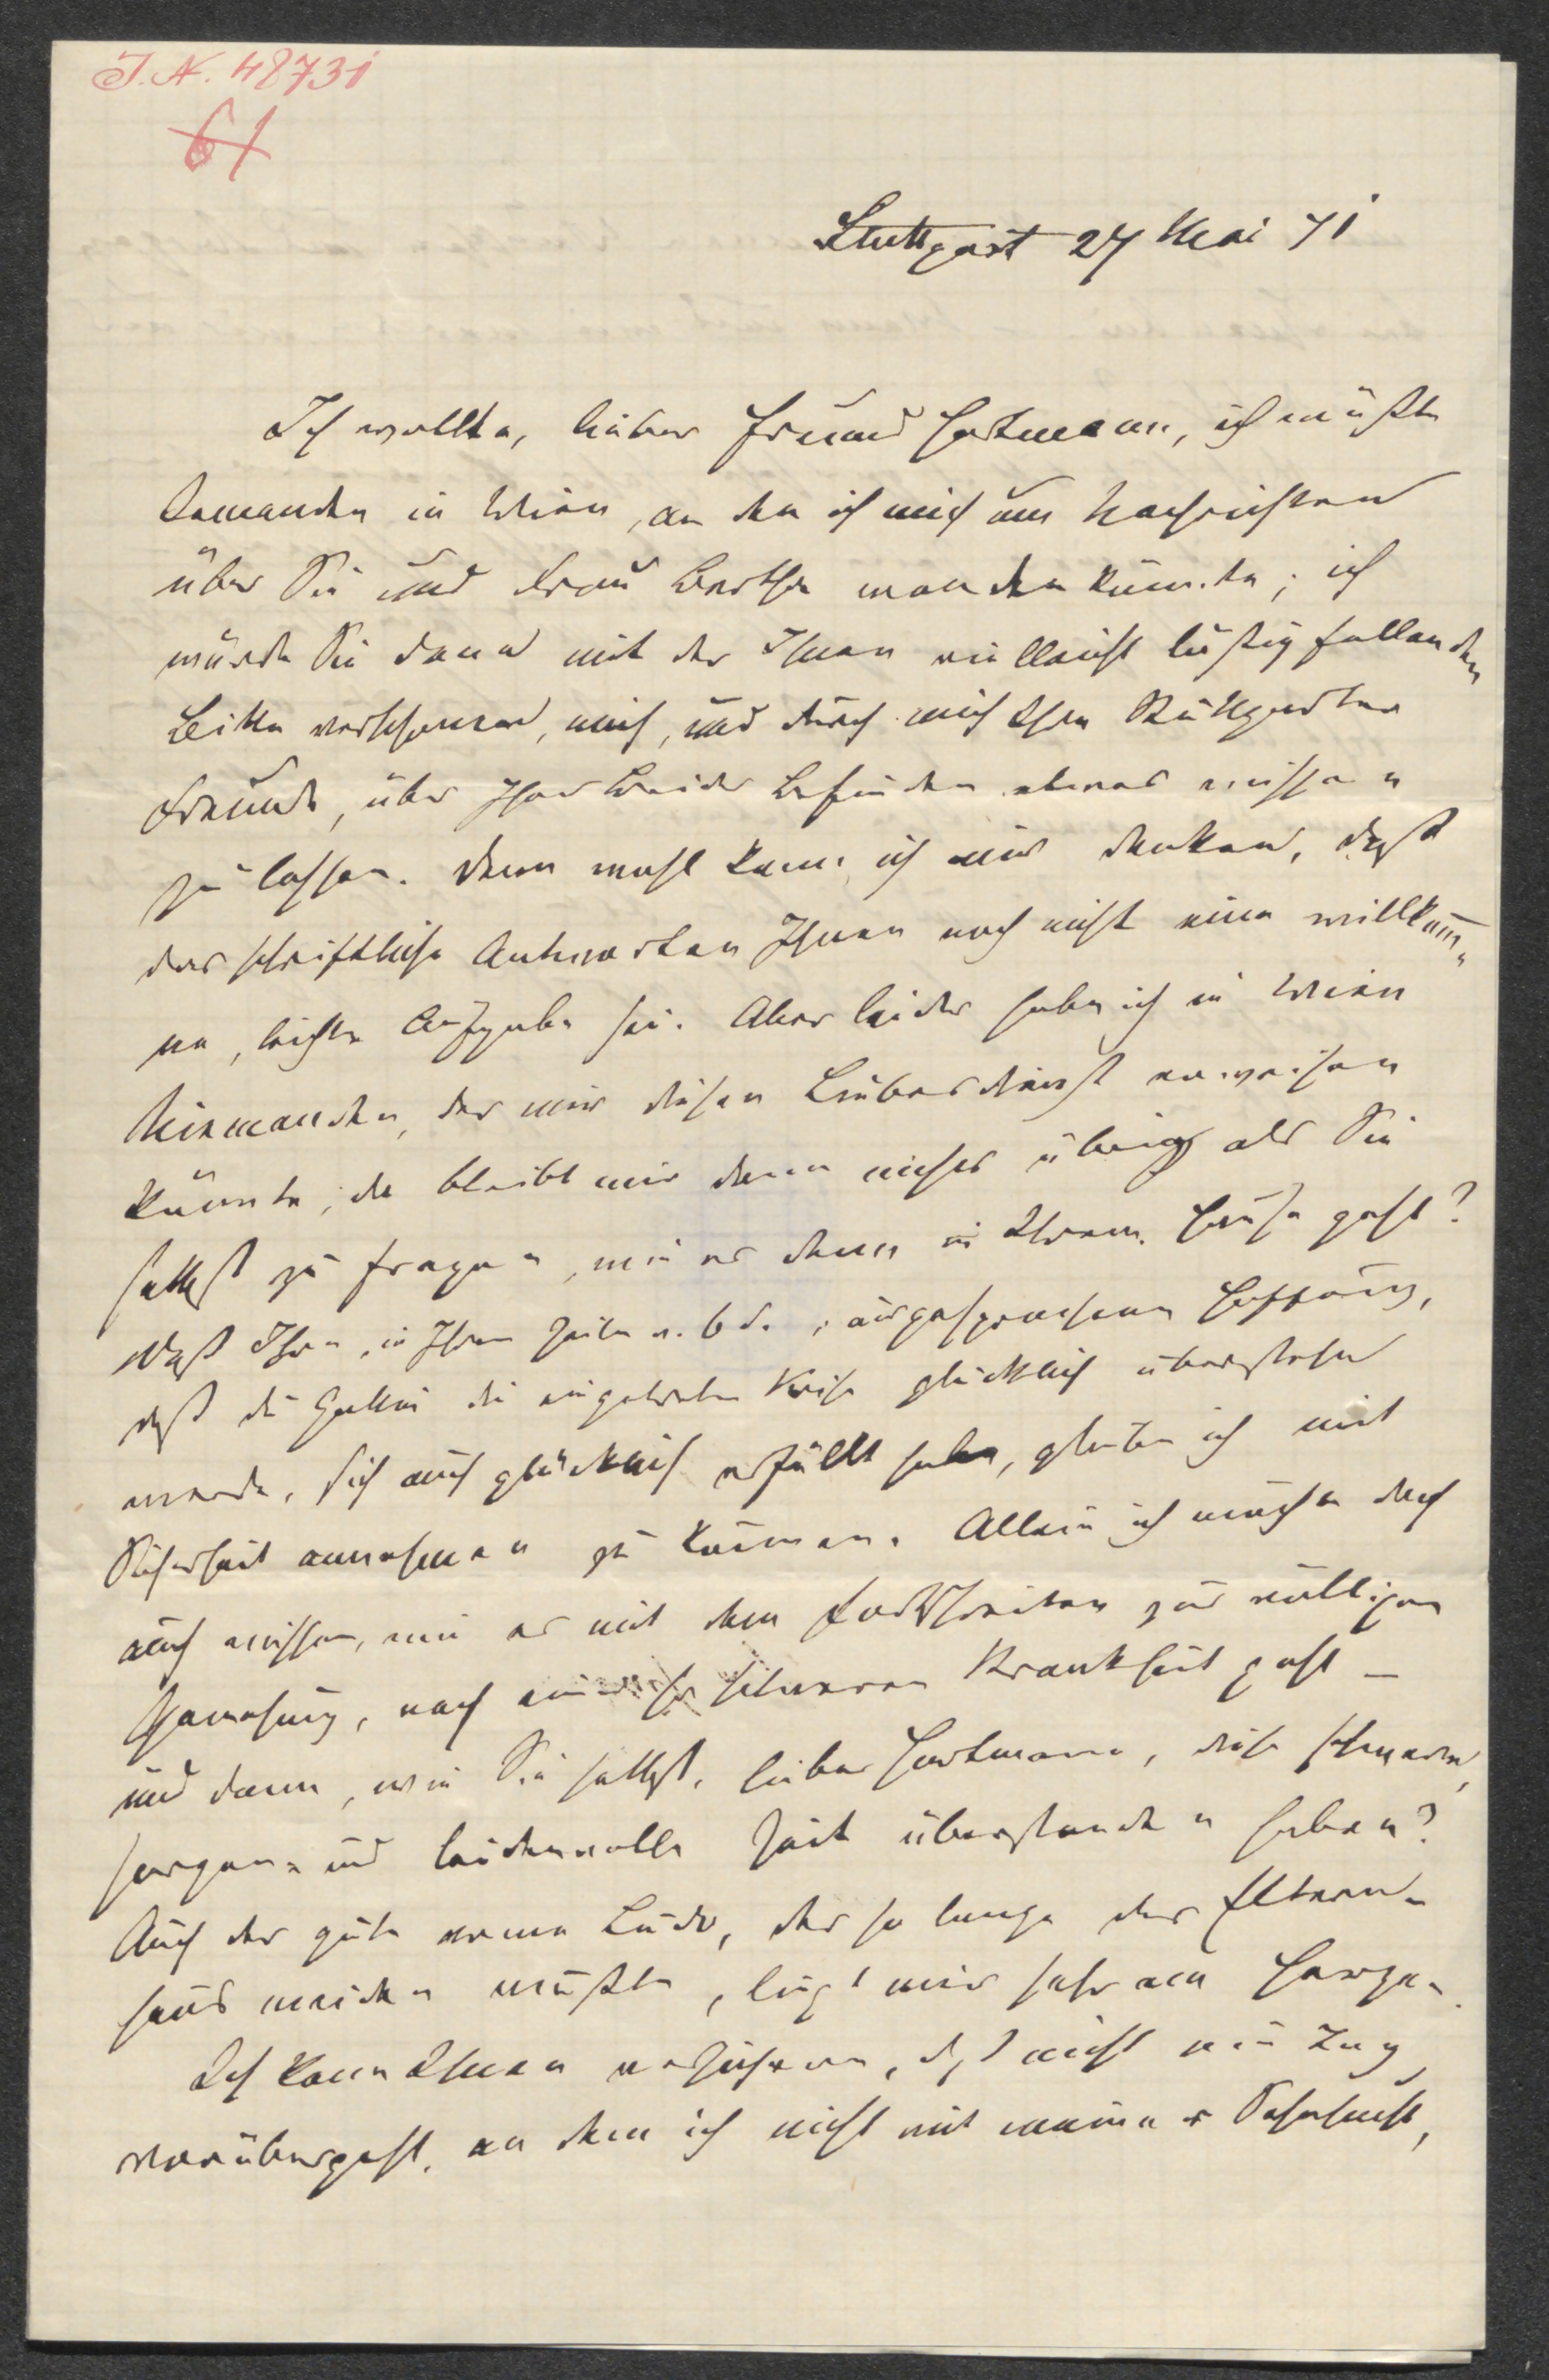 J. N. 48731
61
Stuttgart 27 Mai 71
Ich wollte, lieber Freund Hartmann, ich wüßte
Jemanden in Wien, an den ich mich um Nachrichten
über Sie und Frau Bertha wenden könnte; ich
würde Sie dann mit der Ihnen vielleicht lästig fallenden
Bitte verschonen, mich, und durch mich Ihre Stuttgarter
Freunde, über Ihrer Beider Befinden etwas wissen
zu lassen. Denn wohl kann ich mir denken, daß
das schriftliche Antworten Ihnen noch nicht eine willkom̄-
ne, leichte Aufgabe sei. Aber leider habe ich in Wien
Niemanden, der mir diesen Liebesdienst erweisen
könnte; da bleibt mir denn nichts übrig als Sie
selbst zu fragen, wie es denn in Ihrem Hause geht?
Daß Ihre, in Ihren Zeilen v. 6 d. ausgesprochene Hoffnung,
daß die Gattin die eingetretene Krise glücklich überstehen
werde, sich auch glücklich erfüllt habe, glaube ich mit
Sicherheit annehmen zu können. Allein ich möchte doch
auch wissen, wie es mit dem Fortschreiten zur völligen
Genesung, nach einer so schweren Krankheit geht –
und dann, wie Sie selbst, lieber Hartmann, diese schwere,
sorgen- und leidenvolle Zeit überstanden haben?
Auch der gute arme Ludo, der so lange das Eltern-
haus meiden mußte, liegt mir sehr am Herzen.
Ich kann Ihnen versichern, daß nicht ein Tag
vorübergeht, an dem ich nicht mit meiner Sehnsucht,